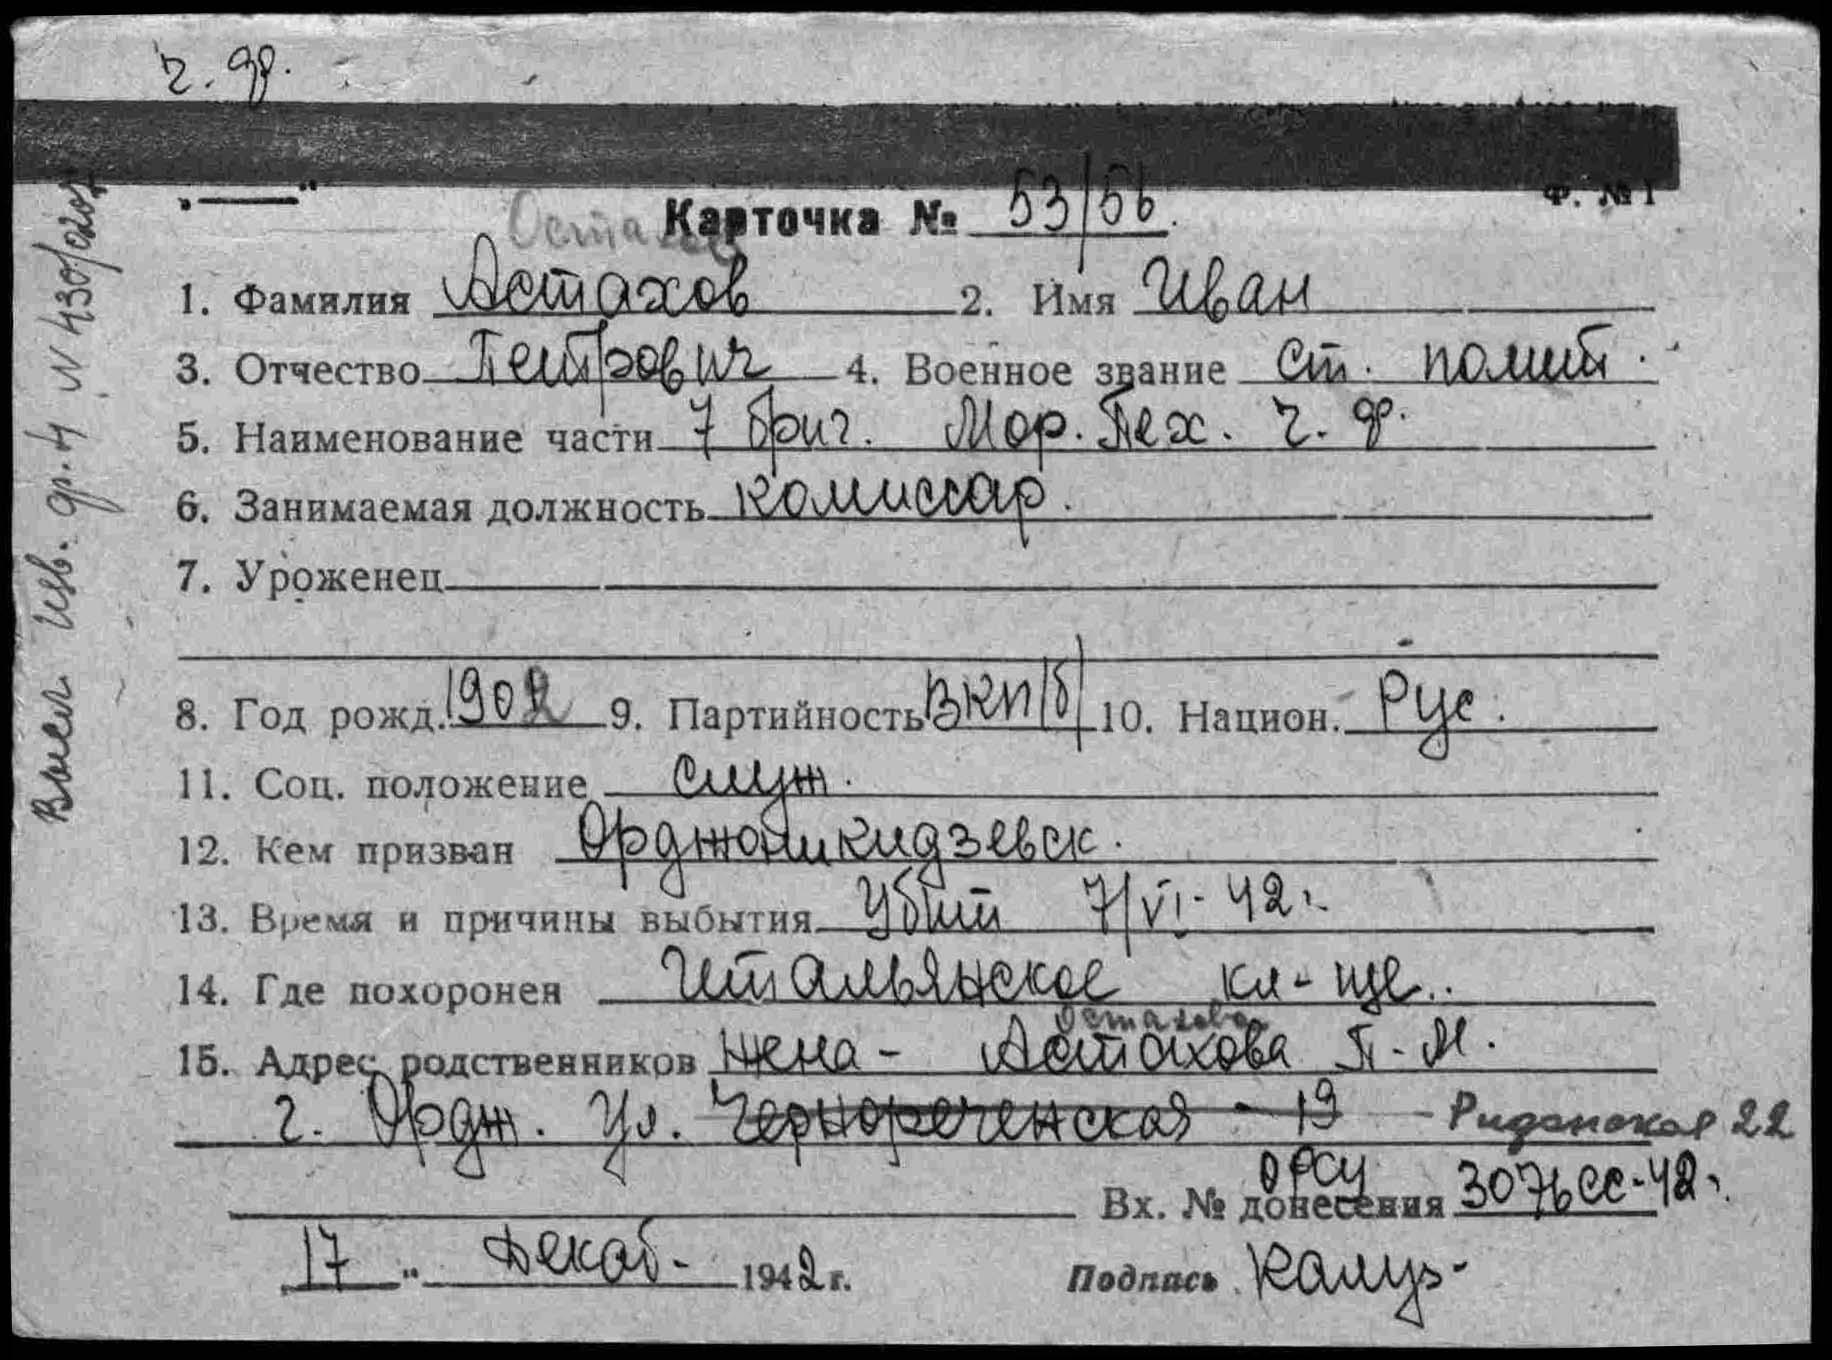 ч. ф.
Ф. № 1
Остахов
Карточка № 53/56.
1. Фамилия Астахов 2. Имя Иван
3. Отчество Петрович 4. Военное звание Ст. полит.
5. Наименование части 7 бриг. Мор. Пех. ч. ф.
6. Занимаемая должность комиссар.
7. Уроженец
8. Год рожд. 1902 9. Партийность ВКП/б/ 10. Национ. Рус.
11. Соц. положение служ.
12. Кем призван Орджоникидзевск.
13. Время и причины выбытия Убит 7/VI-42г.
14. Где похоронен Итальянское кл-ще..
Остахова
15. Адрес родственников жена - Астахова П. М.
г. Ордж. Ул. Чернореченская - 19 22
ОРСУ
Вх. № донесения 3076сс-42г.
17 " Декаб- 1942 г. Подпись
Изв. ф. 4 N 430/